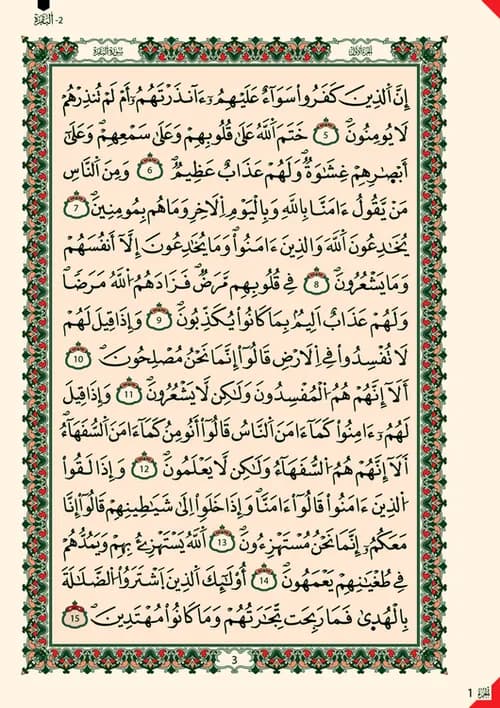 2- البقرة
سورة البقرة
الجزء الأول
إِنَّ اَ۬لذِينَ كَفَرُواْ سَوَآءٌ عَلَيْهِمُۥٓ ءَآنذَرْتَهُمُۥٓ أَمْ لَمْ تُنذِرْهُمْ
لَا يُومِنُونَۖ 5 خَتَمَ اَ۬للَّهُ عَلَىٰ قُلُوبِهِمْ وَعَلَىٰ سَمْعِهِمْۖ وَعَلَىٰٓ
أَبْصٰ۪رِهِمْ غِشَٰوَةٌۖ وَلَهُمْ عَذَابٌ عَظِيمٌۖ 6 وَمِنَ اَ۬لنَّاسِ
مَنْ يَّقُولُ ءَامَنَّا بِاللَّهِ وَبِالْيَوْمِ اِ۬لَاخِرِ وَمَا هُم بِمُومِنِينَۖ 7
يُخَٰدِعُونَ اَ۬للَّهَ وَالذِينَ ءَامَنُواْۖ وَمَا يُخَٰدِعُونَ إِلَّآ أَنفُسَهُمْ
وَمَا يَشْعُرُونَۖ 8 فِے قُلُوبِهِم مَّرَضٌۖ فَزَادَهُمُ اُ۬للَّهُ مَرَضاٗۖ
وَلَهُمْ عَذَابٌ اَلِيمُۢ بِمَا كَانُواْ يُكَذِّبُونَۖ 9 وَإِذَا قِيلَ لَهُمْ
لَا تُفْسِدُواْ فِے اِ۬لَارْضِ قَالُوٓاْ إِنَّمَا نَحْنُ مُصْلِحُونَۖ 10
أَلَآ إِنَّهُمْ هُمُ اُ۬لْمُفْسِدُونَ وَلَٰكِن لَّا يَشْعُرُونَۖ 11 وَإِذَا قِيلَ
لَهُمُۥٓ ءَامِنُواْ كَمَآ ءَامَنَ اَ۬لنَّاسُ قَالُوٓاْ أَنُومِنُ كَمَآ ءَامَنَ اَ۬لسُّفَهَآءُۖ
أَلَآ إِنَّهُمْ هُمُ اُ۬لسُّفَهَآءُ وَلَٰكِن لَّا يَعْلَمُونَۖ 12 وَإِذَا لَقُواْ
اُ۬لذِينَ ءَامَنُواْ قَالُوٓاْ ءَامَنَّاۖ وَإِذَا خَلَوِاْ اِلَىٰ شَيَٰطِينِهِمْ قَالُوٓاْ إِنَّا
مَعَكُمُۥٓ إِنَّمَا نَحْنُ مُسْتَهْزِءُونَۖ 13 اَ۬للَّهُ يَسْتَهْزِئُ بِهِمْ وَيَمُدُّهُمْ
فِے طُغْيَٰنِهِمْ يَعْمَهُونَۖ 14 أُوْلَٰٓئِكَ اَ۬لذِينَ اَ۪شْتَرَوُاْ اُ۬لضَّلَٰلَةَ
بِالْهُد۪ىٰ فَمَا رَبِحَت تِّجَٰرَتُهُمْ وَمَا كَانُواْ مُهْتَدِينَۖ 15
3
الجزء 1